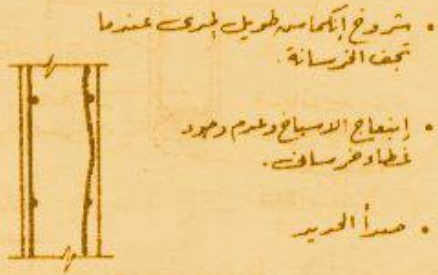 • شروخ إنكماس طويل المدى عندما
تجف الخرسانة.
• إنبعاج الاسياخ وعدم وجود
غطاء خرسانى.
• صدأ الحديد